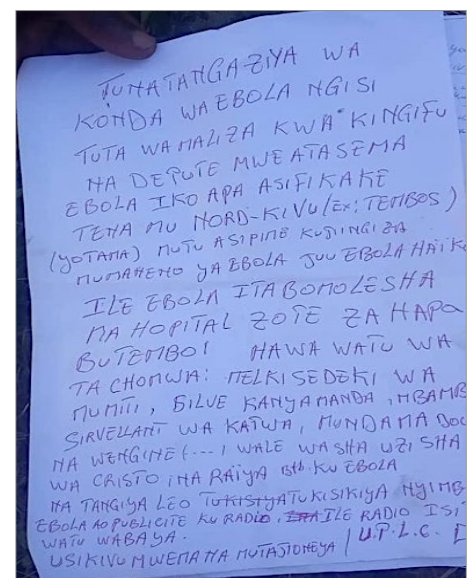 TUNATANGAZIYA WA
KONDA WA EBOLA NGISI
TUTA WA MALIZA KWA KINGIFU
NA DEPUTE MWE ATASEMA
EBOLA IKO APA ASIFIKAKE
TENA MU NORD-KIVU (EX: TEMBOS)
(YOTAMA) MUTU ASIPIME KUJIINGIZA
MUMANENO YA EBOLA JUU EBOLA HAIK
ILE EBOLA ITABOMOLESHA
MA HOPITAL ZOTE ZA HAPA
BUTEMBO! HAWA WATU WA
TA CHOMWA: MELKISEDEKI WA
MUMITI, SILVE KANYAMANDA, MBAMB
SIRVELLANT WA KATWA, MUNDAMA DOC
NA WENGINE (---) WALE WASHA UZISHA
WA CRISTO, NA RAIYA Btb KU EBOLA
NA TANGIYA LEO TUKISIKIYA NYIMB
EBOLA AO PUBLICITE KU RADIO, ILE RADIO ISI
WATU WABAYA.
USIKIVU MWEMA NA MUTAJIONEYA / U.P.L.C. [